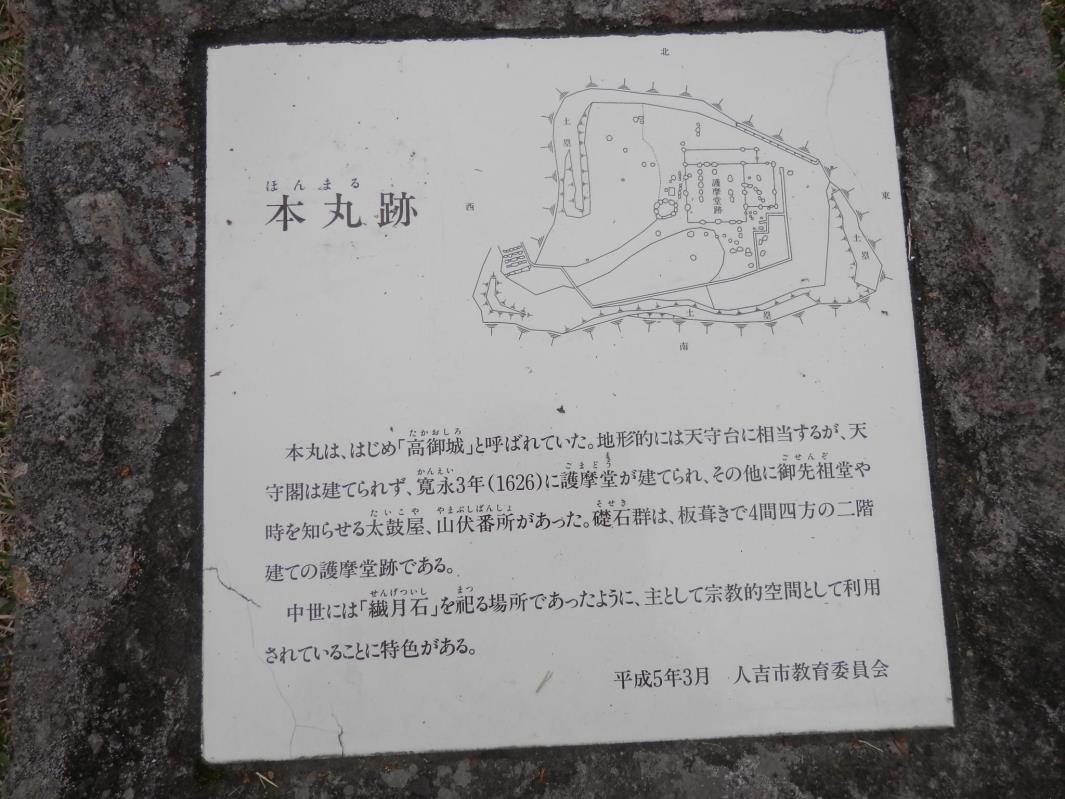 北
土塁
ほんまる
本丸跡
西
護摩堂跡
東
土塁
土塁
南
たかおしろ
本丸は、はじめ「高御城」と呼ばれていた。地形的には天守台に相当するが、天
かんえい ごまどう も ごせんぞ
守閣は建てられず、寛永3年(1626)に護摩堂が建てられ、その他に御先祖堂や
たいこや やまぶしばんしょ そせき
時を知らせる太鼓屋、山伏番所があった。礎石群は、板葺きで4間四方の二階
建ての護摩堂跡である。
せんげついし まつ
中世には「繊月石」を祀る場所であったように、主として宗教的空間として利用
されていることに特色がある。
平成5年3月 人吉市教育委員会